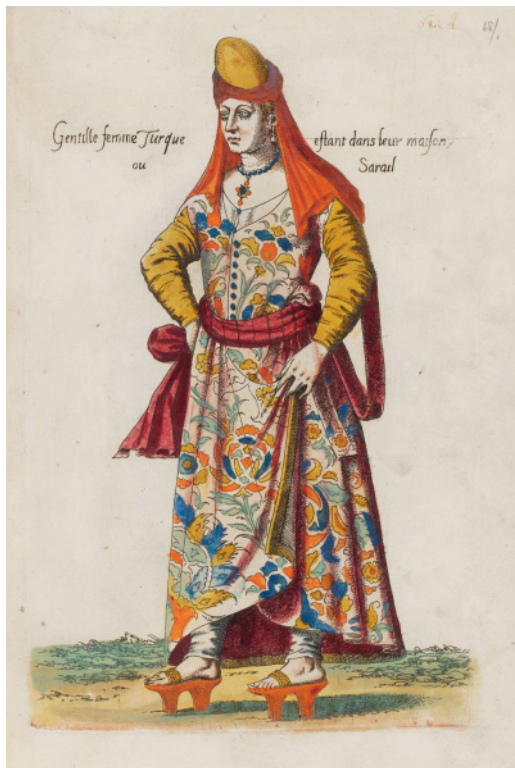 Gentille femme Turque eſtant dans leur maiſon,
ou Sarail